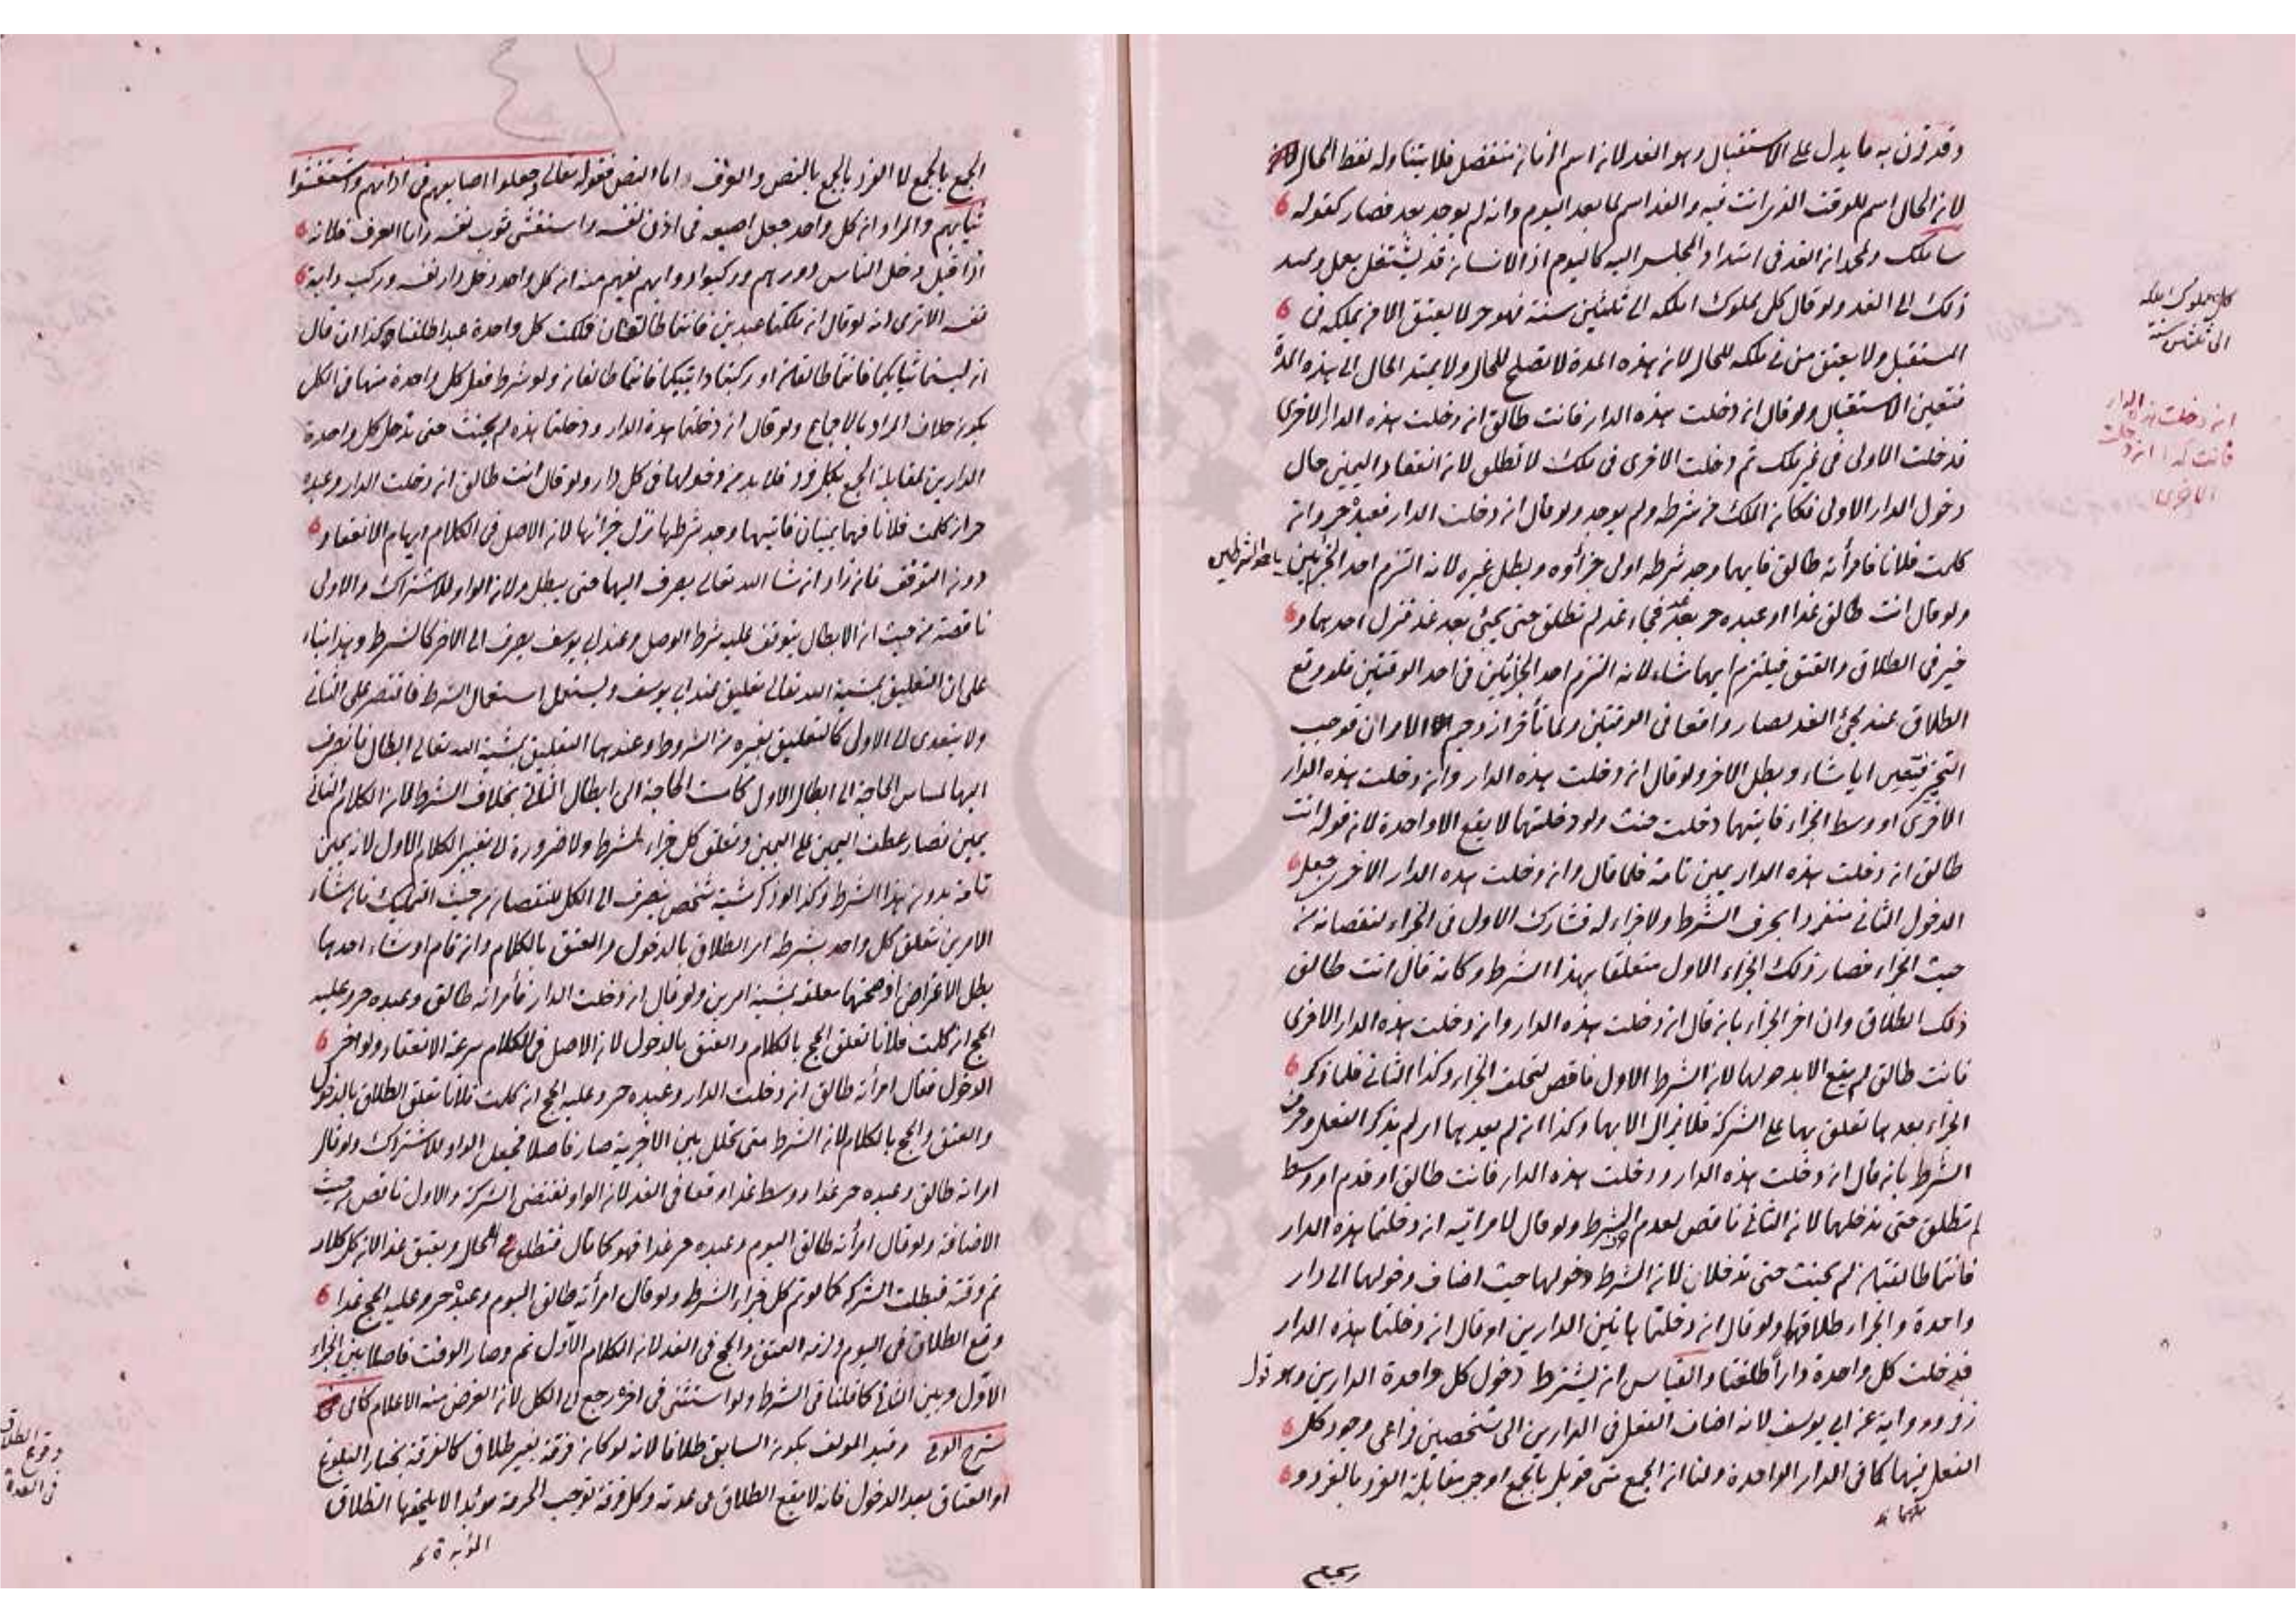 وقد قرن به ما يدل على الاستقبال وهو الغد لانه اسم لزمان منفصل فلا يتناوله لفظ الحال
لان الحال اسم للوقت الذى انت فيه والغد اسم لما بعد اليوم وانه لم يوجد بعد فصار كقوله
ساملك ولمحمد ان الغد فى امتداد المجلس اليه كاليوم اذ الانسان قد يشتغل بعمل ويمتد
ذلك الى الغد ولو قال كل مملوك املكه الى ثلثين سنة فهو حر لا يعتق الا من يملكه فى
المستقبل ولا يعتق من فى ملكه للحال لان هذه المدة لا تصلح للحال ولا يمتد الحال الى هذه المدة
فتعين الاستقبال ولو قال ان دخلت هذه الدار فانت طالق ان دخلت هذه الدار الاخرى
فدخلت الاولى فى غير ملك ثم دخلت الاخرى فى ملك لا تطلق لان انعقاد اليمين حال
دخول الدار الاولى فكان الملك من شرطه ولم يوجد ولو قال ان دخلت الدار فعبده حر وان
كلمت فلانا فامرأته طالق فايهما وجد شرطه اولى جزاؤه وبطل غيره لانه التزم احد الجزءين باحد الشرطين
ولو قال انت طالق غدا او عبده حر بعد غد فجاء غد لم تطلق حتى يجئ بعد غد فنزل احدهما و
خير فى الطلاق والعتق فيلتزم ايهما شاء لانه التزم احد الجزائين فى احد الوقتين فلو وقع
الطلاق عند مجئ الغد لصار واقعا فى الوقتين ولما تأخر ازدحم الامران فوجب
التخير فتعين ايا شاء وبطل الاخر ولو قال ان دخلت هذه الدار وان دخلت هذه الدار
الاخرى او وسط الجزاء فايتهما دخلت حنث ولو دخلتهما لا يقع الا واحدة لان قوله انت
طالق ان دخلت هذه الدار يمين تامة فلما قال وان دخلت هذه الدار الاخرى جعل
الدخول الثانى منفردا بحرف الشرط ولا جزاء له فشارك الاول فى الجزاء لنقصانه من
حيث الجزاء فصار ذلك الجزاء الاول متعلقا بهذا الشرط وكانه قال انت طالق
ذلك الطلاق وان اخر الجزاء بان قال ان دخلت هذه الدار وان دخلت هذه الدار الاخرى
فانت طالق لم يقع الا بدخولهما لان الشرط الاول ناقص لتخلف الجزاء وكذا الثانى فلما ذكر
الجزاء بعدهما تعلق بهما على الشركة فلا نزال الا بهما وكذا ان لم يعدهما اى لم يذكر الفعل وحرف
الشرط بان قال ان دخلت هذه الدار ودخلت هذه الدار فانت طالق او قدم او وسط
لم تطلق حتى تدخلهما لان الثانى ناقص لعدم الشرط ولو قال لامراتيه ان دخلتما هذه الدار
فانتما طالقتان لم يحنث حتى تدخلان لان الشرط دخولهما حيث اضاف دخولهما الى دار
واحدة والجزاء طلاقهما ولو قال ان دخلتما هاتين الدارين او قال ان دخلتما هذه الدار
فدخلت كل واحدة دارا طلقتا والقياس ان يشترط دخول كل واحدة الدارين وهو قول
زفر ورواية عن ابى يوسف لانه اضاف الفعل فى الدارين الى شخصين فراعى وجود كل
الفعل منهما كما فى الدار الواحدة ولنا ان الجمع متى قوبل بالجمع اوجب مقابلة الفرد بالفرد و
كل مملوك املكه
الى ثلثين سنة
ان دخلت هذه الدار
فانت كذا ان دخلت
الاخرى
٤٢
الجمع بالجمع لا الفرد بالجمع بالنص والعرف اما النص فقوله تعالى وجعلوا اصابعهم فى اذانهم واستغشوا
ثيابهم والمراد ان كل واحد جعل اصبعه فى اذن نفسه واستغشى ثوب نفسه واما العرف فلانه
اذا قيل دخل الناس دورهم وركبوا دوابهم يفهم منه ان كل واحد دخل دار نفسه وركب دابة
نفسه الاترى انه لو قال ان ملكتما عبدين فانتما طالقتان فملكت كل واحدة عبدا طلقتا وكذا ان قال
ان لبستما ثيابكما فانتما طالقان او ركبتما دابتيكما فانتما طالقان ولو شرط فعل كل واحدة منهما فى الكل
يكون خلاف المراد بالاجماع ولو قال ان دخلتما هذه الدار ودخلتما هذه لم يحنث حتى تدخل كل واحدة
الدارين لمقابلة الجمع بكل فرد فلا بد من دخولهما فى كل دار ولو قال انت طالق ان دخلت الدار وعبده
حر ان كلمت فلانا فهما يمينان فايتهما وجد شرطها نزل جزائها لان الاصل فى الكلام ابهام الانعقاد
دون التوقف فان زاد ان شا الله تعالى يصرف اليهما حتى يبطل ولان الواو للاشتراك والاولى
ناقصة من حيث ان الابطال يتوقف عليه شرط الوصل وعند ابى يوسف يصرف الى الاخر كالشرط وهذا بناء
على ان التعليق بمشية الله تعالى تعليق عند ابى يوسف ويستعمل استعمال الشرط فاقتصر على الثانى
ولا يتعدى الى الاول كالتعليق بغيره من الشروط وعندهما التعليق بمشية الله تعالى ابطال فانصرف
اليهما لمساس الحاجة الى ابطال الاول كما مست الحاجة الى ابطال الثانى بخلاف الشرط لان الكلام الثانى
يمين فصار عطف اليمين على اليمين وتعلق كل جزاء لشرط ولا ضرورة الى تغيير الكلام الاول لانه يمين
تامة بدون هذا الشرط وكذا لو ذكر مشية شخص ينصرف الى الكل للنقصان من حيث التمليك فان شاء
الامرين تعلق كل واحد بشرطه اى الطلاق بالدخول والعتق بالكلام وان قام او شاء احدهما
بطل الاعراض او صحتهما معلقة بمشية امرين ولو قال ان دخلت الدار فأمرأته طالق وعبده حر وعليه
الحج ان كلمت فلانا تعلق الحج بالكلام والعتق بالدخول لان الاصل فى الكلام سرعة الانعقاد ولو اخر
الدخول فقال امرأته طالق ان دخلت الدار وعبده حر وعليه الحج ان كلمت فلانا تعلق الطلاق بالدخول
والعتق والحج بالكلام لان الشرط متى تخلل بين الاجزية صار فاصلا فجعل الواو للاشتراك ولو قال
امراته طالق وعبده حر غدا او وسط غدا وقعا فى الغد لان الواو تقتضى الشركة والاول ناقص من حيث
الاضافة ولو قال امرأته طالق اليوم وعبده حر غدا فهو كما قال فتطلق فى الحال ويعتق غدا لان كل كلام
تم وقته فبطلت الشركة كما لو تم كل جزاء الشرط ولو قال امرأته طالق اليوم وعبده حر وعليه الحج غدا
وقع الطلاق فى اليوم ولزمه العتق والحج فى الغد لان الكلام الاول تم وصار الوقت فاصلا بين الجزاء
الاول وبين الثانى كما قلنا فى الشرط ولو استثنى فى اخره رجع الى الكل لان الغرض منه الاعلام كما فى
شرح الوافى وقيد المؤلف بكون السابق طلاقا لانه لو كان فرقة بغير طلاق كالفرقة بخيار البلوغ
او العتاق بعد الدخول فانه لا يقع الطلاق فى عدته وكل فرقة توجب الحرمة مؤبدا لا يلحقها الطلاق
وقوع الطلاق
فى العدة